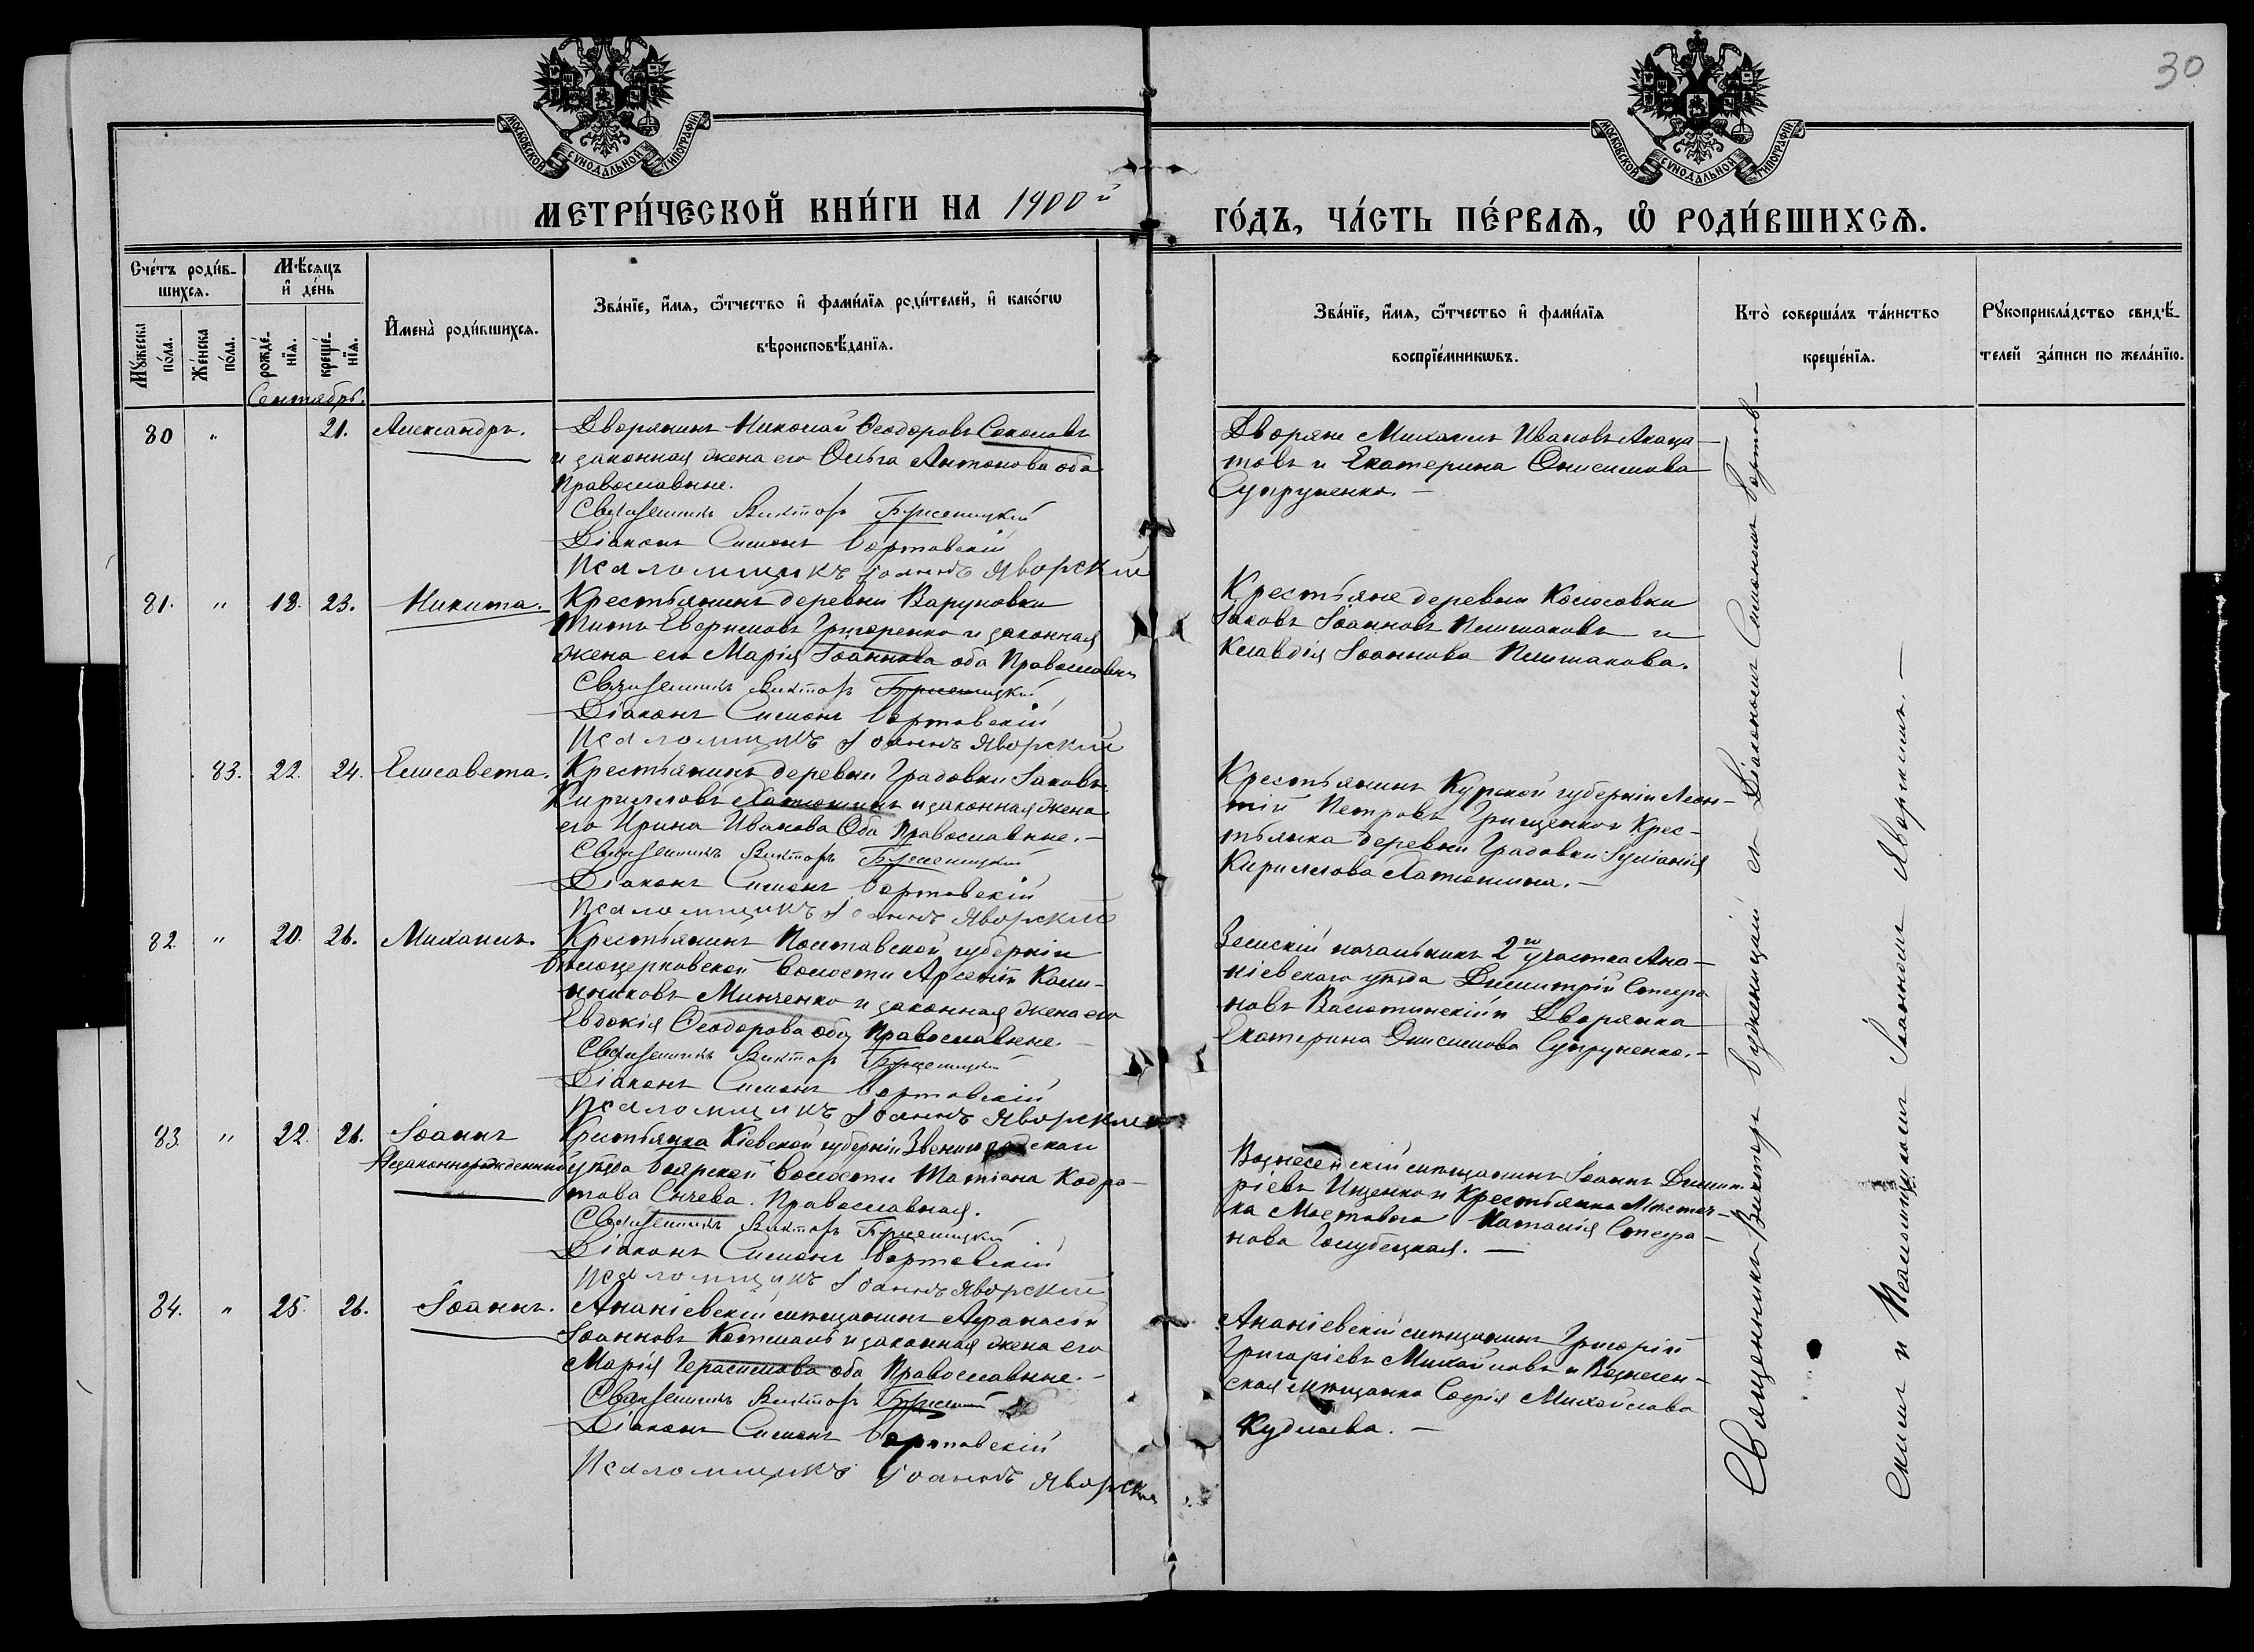 30
МОСКОВСКОЙ СѴНОДАЛЬНОЙ ТИПОГРАФІИ
МОСКОВСКОЙ СѴНОДАЛЬНОЙ ТИПОГРАФІИ
МЕТРИ́ЧЕСКОЙ КНИ́ГИ НА 1900й
ГО́ДЪ, ЧА́СТЬ ПЕ́РВАѦ, Ѡ РОДИ́ВШИХСѦ.
Сче́тъ роди́в-
шихсѧ.
Мꙋ́жеска
по́ла.
Же́нска
по́ла.
Мѣ́сяцъ
и҆ де́нь
рожде́-
нїѧ.
креще́-
нїѧ.
И҆мена̀ роди́вшихсѧ.
Зва́нїе, и҆́мѧ, ѻ҆́тчество и҆ фами́лїѧ роди́телей, и҆ како́гѡ
вѣроисповѣ́данїѧ.
Зва́нїе, и҆́мѧ, ѻ҆́тчество и҆ фами́лїѧ
воспрїе́мникѡвъ.
Кто̀ соверша́лъ та́инство
креще́нїѧ.
Рꙋкоприкла́дство свидѣ́-
телей за́писи по жела́нїю.
Сентябрь.
80 " 21. Александръ.
Дворянинъ Николай Ѳеодоровъ Соколовъ
и законная жена его Ольга Антонова оба
Православные.
Священникъ Викторъ
Діаконъ Симонъ Бортовскій
Псаломщикъ Іоаннъ Яворскій
Дворяне Михаилъ Ивановъ Акаца-
товъ и Екатерина Онисимова
Супруненко. —
81. " 18. 23. Никита.
Крестьянинъ деревни Варуновки
Титъ Евфимовъ Григоренко и законная
жена его Марія Іоаннова оба Православны
Священникъ Викторъ
Діаконъ Симонъ Бортовскій
Псаломщикъ Іоаннъ Яворскій
Крестьяне деревни Колосовки
Іаковъ Іоанновъ и
Клавдія Іоаннова
83. 22. 24. Елисавета.
Крестьянинъ деревни Градовки Іаковъ
Кирилловъ Латюшинъ и законная жена
его Ирина Иванова Оба Православные. —
Священникъ Викторъ
Діаконъ Симонъ Бортовскій
Псаломщикъ Іоаннъ Яворскій
Крестьянинъ Курской губерніи Леон-
тій Петровъ Грищенко и Крес-
тьянка деревни Градовки Іуліанія
Кириллова Латюшина. —
82. " 20. 26. Михаилъ.
Крестьянинъ Полтавской губерніи
Бѣлоцерковской волости Арсеній Кали-
никовъ Минченко и законная жена его
Евдокія Ѳеодорова оба Православные. —
Священникъ Викторъ
Діаконъ Симонъ Бортовскій
Псаломщикъ Іоаннъ Яворскій
Земскій начальникъ 2го участка Ана-
ніевскаго уѣзда Димитрій Стефа
новъ Валютинскій и Дворянка
Екатерина Онисимова Супруненко. —
83 " 22. 26. Іоаннъ
Незаконнорожденный
Крестьянка Кіевской губерніи Звенигородскаго
уѣзда Боярской волости Татіана Кодра-
това Сычева. Православная.
Священникъ Викторъ
Діаконъ Симонъ Бортовскій
Псаломщикъ Іоаннъ Яворскій
Вознесенскій мѣщанинъ Іоаннъ Димит-
ріевъ Ищенко и Крестьянка Мѣстеч-
ка Мостового Наталія Стефа-
нова Голубецкая. —
84. " 25. 26. Іоаннъ.
Ананіевскій мѣщанинъ Аѳанасій
Іоанновъ и законная жена его
Марія Герасимова оба Православные. —
Священникъ Викторъ
Діаконъ Симонъ Бортовскій
Псаломщикъ Іоаннъ Яворскі
Ананіевскій мѣщанинъ Григорій
Григоріевъ Михайловъ и Вознесен-
ская мѣщанка Софія Михайлова
Кудлаева. —
Священникъ Викторъ Будженицкій съ Діакономъ Симономъ Бортов-
скимъ и Псаломщикомъ Іоанномъ Яворскимъ. —